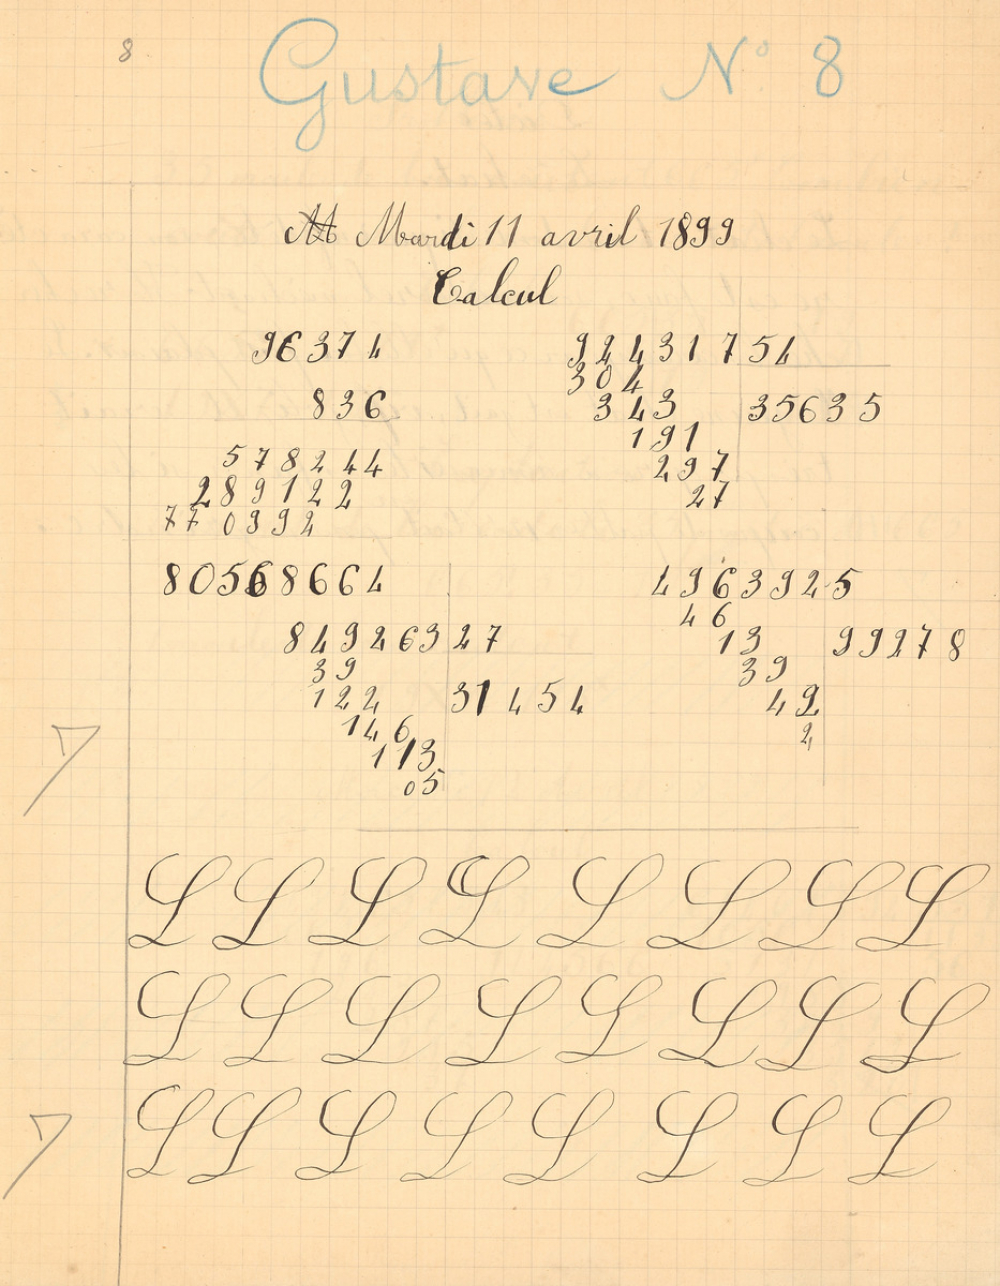 8
Gustave N° 8
Mardi 11 avril 1899
Calcul
96374
924317 54
304
836
343 35635
191
578244
297
289122
27
770992
80568664
496392 5
46
849263 27
13 99278
39
39
122 31454
42
146
2
113
05
7
L L L L L L L L
L L L L L L L L
7
L L L L L L L L